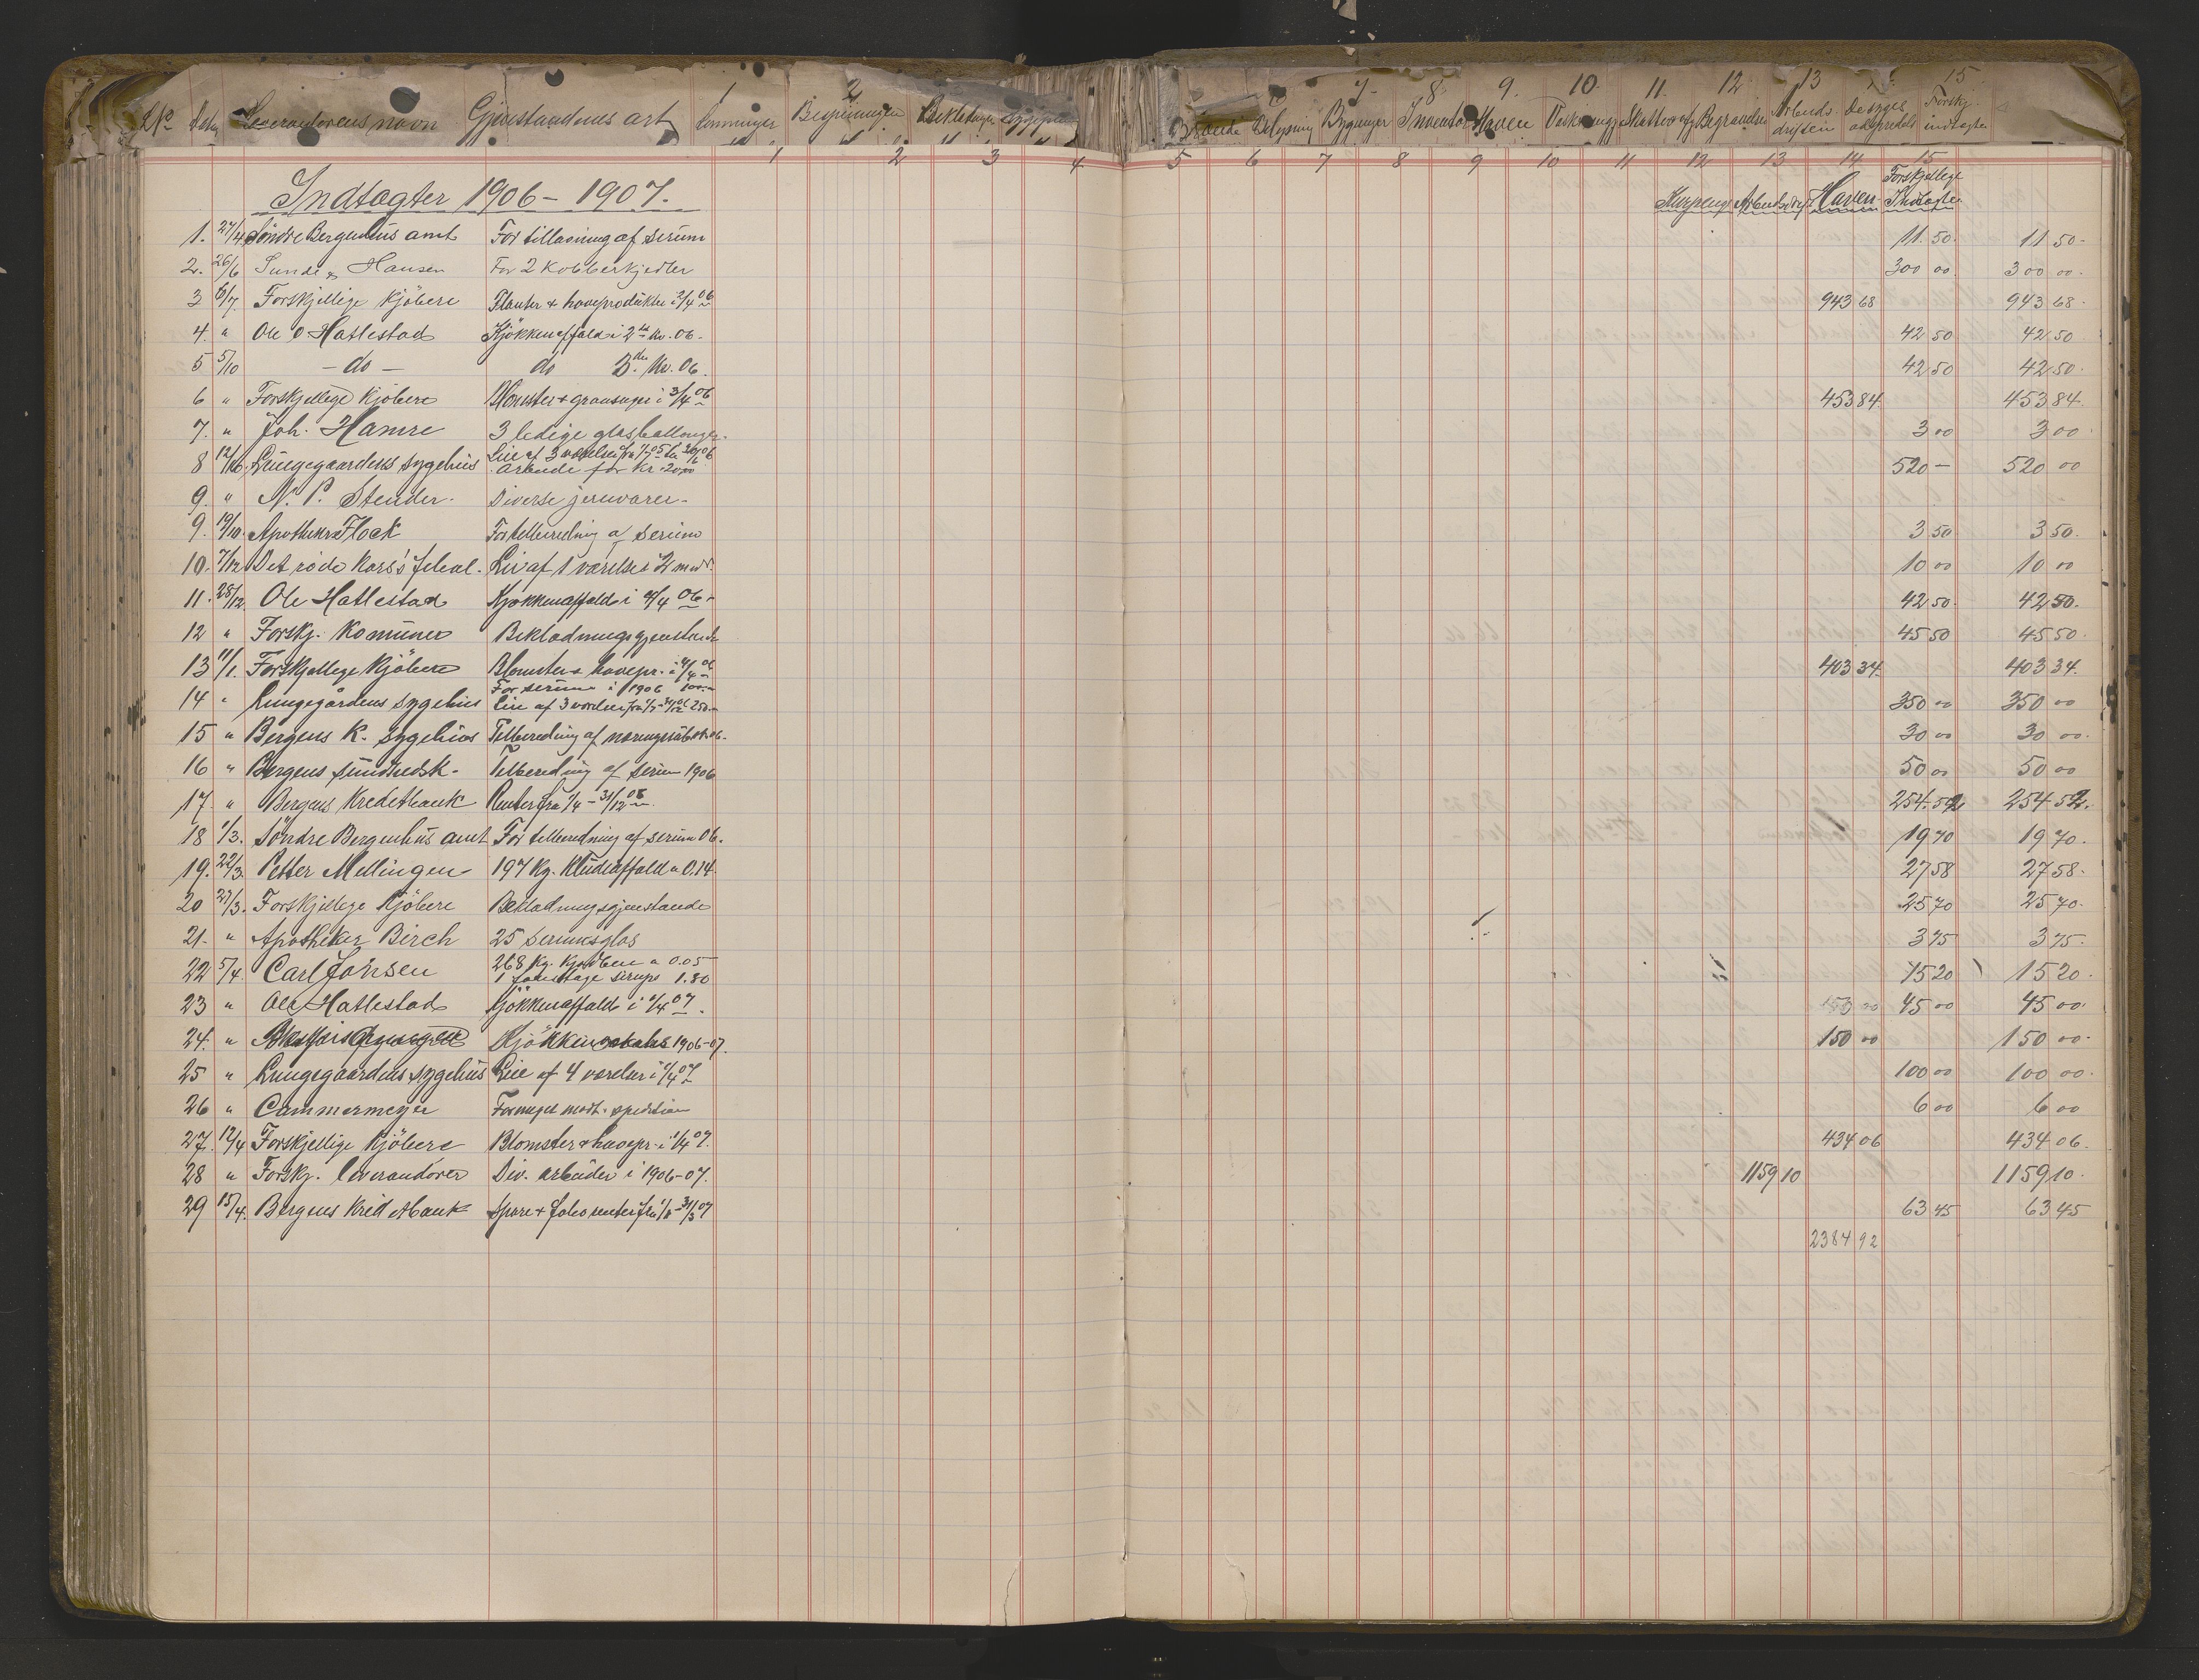 No Dato Leverandörens navn Gjenstandens art Lønninger Bespisningen Beklædningen Sygepleien
1 2
7. 8. 9. 10. 11. 12 13 15
Brænde Belysning Bygninger Inventar Haven Skatter og afg. Begravelser Arbeids-driften Forskj. indtægter
1 2 3 4 5 6 7 8 9 10 11 12 13 14 15
Indtægter 1906 - 1907.
Kurpenge Arbeidsdr. Haven Forskjellige Indtægter
1. 27/4 Söndre Bergenhus amt For tillavning af serum 11.50. 11 50-
2. 26/6 Sunde & Hansen For 2 kobberkjedler 300 00 300 00.
3 6/7. Forskjellige kjöbere Planter & haveprodukter i 2/4 06 943 68 943 68-
4. " Ole O Hatlestad Kjökkenaffald i 2det kv. 06. 42 50 42 50
5 5/10 - do - do 3die kv. 06. 42 50 42 50.
6 " Forskjellige kjöbere Blomster & grönsager i 3/4 06 453 84. 453 84.
7. " Joh. Hamre 3 ledige glasballonger. 3 00 3 00
8 12/10. Lungegaardens sygehus Leie af 3 værelser fra 1/7 05 til 30/6 06
Arbeide for kr. 20.00 520 - 520 00
9. " N. P. Stender. Diverse jernvarer.
9. 19/10. Apotheker Flock For tilberedning af serum 3 50 3 50.
10. 7/12 Det röde kors's filial. Leie af 1 værelse i 2 mndr. 10 00 10 00
11. 28/12 Ole Hatlestad Kjøkkenaffald i 4/4 06. 42 50. 42 50.
12 " Forskj. Komuner Beklædningsgjenstande 45 50 45 50.
13 11/1. Forskjellige kjöbere Blomster & havepr. i 4/4 06 403 34. 403 34.
14 " Lungegårdens sygehus For serum i 1906 100.00
Leie af 3 værelser fra 1/7 - 31/12 06 250.00 350 00 350 00
15 " Bergens K. sygehus Tilberedning af næringssubst. 06. 30 00 30 00.
16 " Bergens sundhedsk. Tilberedning af serum 1906 50 00 50 00
17. " Bergens Kreditbank Renter fra 1/4 - 31/12 06. 254.52 254 52.
18 1/3. Söndre Bergenhus amt For tilberedning af serum 06. 19 70 19 70.
19. 22/3. Petter Mellingen 197 Kg. Kludeaffald a 0.14. 27 58 27 58.
20 27/3. Forskjellige kjöbere Beklædningsgjenstande 25 70 25 70.
21. " Apotheker Birch 25 serumsglas 3 75 3 75.
22 5/4. Carl Johnsen 268 Kg. Kjødben a 0.05
1 fustage sirups 1.80 15 20 15 20.
23 " Ole Hatlestad Kjökkenaffald i 1/4 07. 150 00 45 00 45 00.
24. " Kjökken 1906-07. 150 00 150 00.
25 " Lungegaardens sygehus Leie af 4 værelser i 1/4 07 100 00 100 00.
26 " Cammermeyer For meget modt. spedition 6 00 6 00
27. 12/4 Forskjellige kjöbere Blomster & havepr. i 1/4 07. 434 06 434 06.
28 " Forskj. leverandörer Div. arbeider i 1906-07. 1159 10 1159 10.
29 15/4. Bergens Kreditbank Spare & folio renter fra 1/1 - 31/3 07 63 45 63 45
2384 92